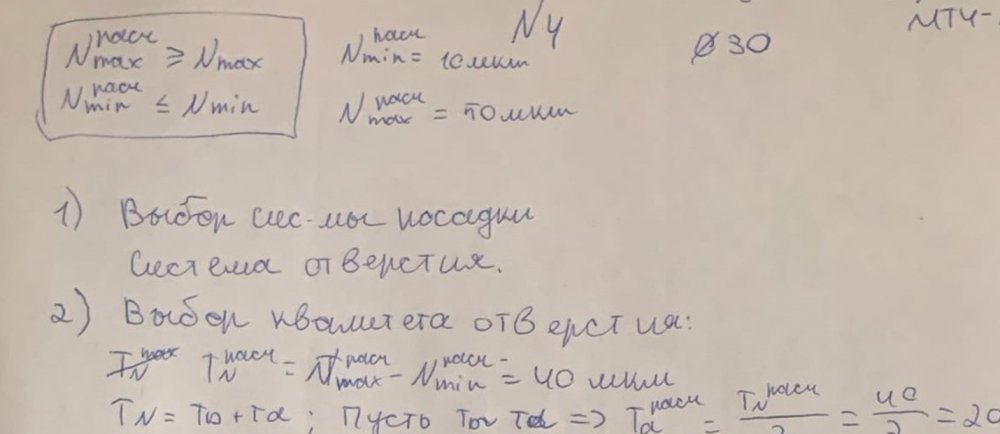 N4
Ø30
МТ4-
N max расч ≥ N max
N min расч = 10 мкм
N min расч ≤ N min
N max расч = 50 мкм
1) Выбор сис-мы посадки
Система отверстия.
2) Выбор квалитета отверстия:
T N max T N расч = N max расч - N min расч = 40 мкм
TN = TD + Td ; Пусть TD Td => T d расч = T N расч / 2 = 40 / 2 = 20